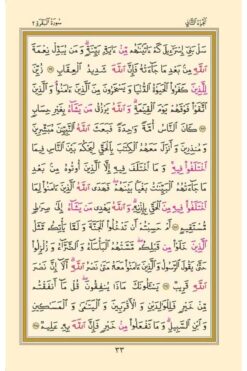 الجزء الثاني
سورة البقرة ٢
سَلْ بَنِىٓ إِسْرَٰٓءِيلَ كَمْ ءَاتَيْنَٰهُم مِّنْ ءَايَةٍۭ بَيِّنَةٍ ۗ وَمَن يُبَدِّلْ نِعْمَةَ
ٱللَّهِ مِنۢ بَعْدِ مَا جَآءَتْهُ فَإِنَّ ٱللَّهَ شَدِيدُ ٱلْعِقَابِ ٢١١ زُيِّنَ
لِلَّذِينَ كَفَرُوا۟ ٱلْحَيَوٰةُ ٱلدُّنْيَا وَيَسْخَرُونَ مِنَ ٱلَّذِينَ ءَامَنُوا۟ ۘ وَٱلَّذِينَ
ٱتَّقَوْا۟ فَوْقَهُمْ يَوْمَ ٱلْقِيَٰمَةِ ۗ وَٱللَّهُ يَرْزُقُ مَن يَشَآءُ بِغَيْرِ حِسَابٍ
٢١٢ كَانَ ٱلنَّاسُ أُمَّةً وَٰحِدَةً فَبَعَثَ ٱللَّهُ ٱلنَّبِيِّۦنَ مُبَشِّرِينَ
وَمُنذِرِينَ وَأَنزَلَ مَعَهُمُ ٱلْكِتَٰبَ بِٱلْحَقِّ لِيَحْكُمَ بَيْنَ ٱلنَّاسِ فِيمَا
ٱخْتَلَفُوا۟ فِيهِ ۚ وَمَا ٱخْتَلَفَ فِيهِ إِلَّا ٱلَّذِينَ أُوتُوهُ مِنۢ بَعْدِ
مَا جَآءَتْهُمُ ٱلْبَيِّنَٰتُ بَغْيًۢا بَيْنَهُمْ ۖ فَهَدَى ٱللَّهُ ٱلَّذِينَ ءَامَنُوا۟ لِمَا
ٱخْتَلَفُوا۟ فِيهِ مِنَ ٱلْحَقِّ بِإِذْنِهِۦ ۗ وَٱللَّهُ يَهْدِى مَن يَشَآءُ إِلَىٰ صِرَٰطٍ
مُّسْتَقِيمٍ ٢١٣ أَمْ حَسِبْتُمْ أَن تَدْخُلُوا۟ ٱلْجَنَّةَ وَلَمَّا يَأْتِكُم مَّثَلُ
ٱلَّذِينَ خَلَوْا۟ مِن قَبْلِكُم ۖ مَّسَّتْهُمُ ٱلْبَأْسَآءُ وَٱلضَّرَّآءُ وَزُلْزِلُوا۟
حَتَّىٰ يَقُولَ ٱلرَّسُولُ وَٱلَّذِينَ ءَامَنُوا۟ مَعَهُۥ مَتَىٰ نَصْرُ ٱللَّهِ ۗ أَلَآ إِنَّ نَصْرَ
ٱللَّهِ قَرِيبٌ ٢١٤ يَسْـَٔلُونَكَ مَاذَا يُنفِقُونَ ۖ قُلْ مَآ أَنفَقْتُم
مِّنْ خَيْرٍ فَلِلْوَٰلِدَيْنِ وَٱلْأَقْرَبِينَ وَٱلْيَتَٰمَىٰ وَٱلْمَسَٰكِينِ
وَٱبْنِ ٱلسَّبِيلِ ۗ وَمَا تَفْعَلُوا۟ مِنْ خَيْرٍ فَإِنَّ ٱللَّهَ بِهِۦ عَلِيمٌ ٢١٥
٣٣